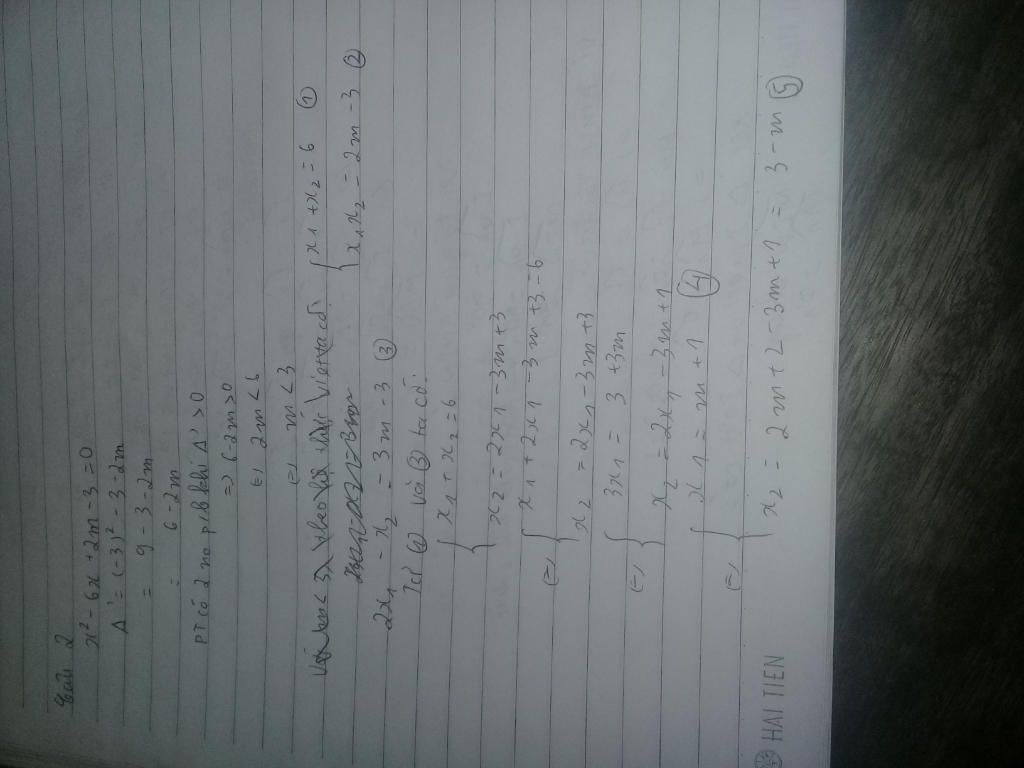 Bài 2
x² - 6x + 2m - 3 = 0
Δ' = (-3)² - 3 - 2m
= 9 - 3 - 2m
= 6 - 2m
PT có 2 no p/b khi Δ' > 0
=> 6 - 2m > 0
(=) 2m < 6
(=) m < 3
Với m < 3 theo hệ thức Viet ta có: { x1 + x2 = 6 ①
x1x2 = 2m - 3 ②
2x1 - x2 = 3m - 3 ③
Từ và ③ ta có:
{ x1 + x2 = 6
x2 = 2x1 - 3m + 3
(=) { x1 + 2x1 - 3m + 3 = 6
x2 = 2x1 - 3m + 3
(=) { 3x1 = 3 + 3m
x2 = 2x1 - 3m + 1
(=) { x1 = m + 1 ④
x2 = 2m + 2 - 3m + 1 = 3 - m ⑤
HAI TIEN